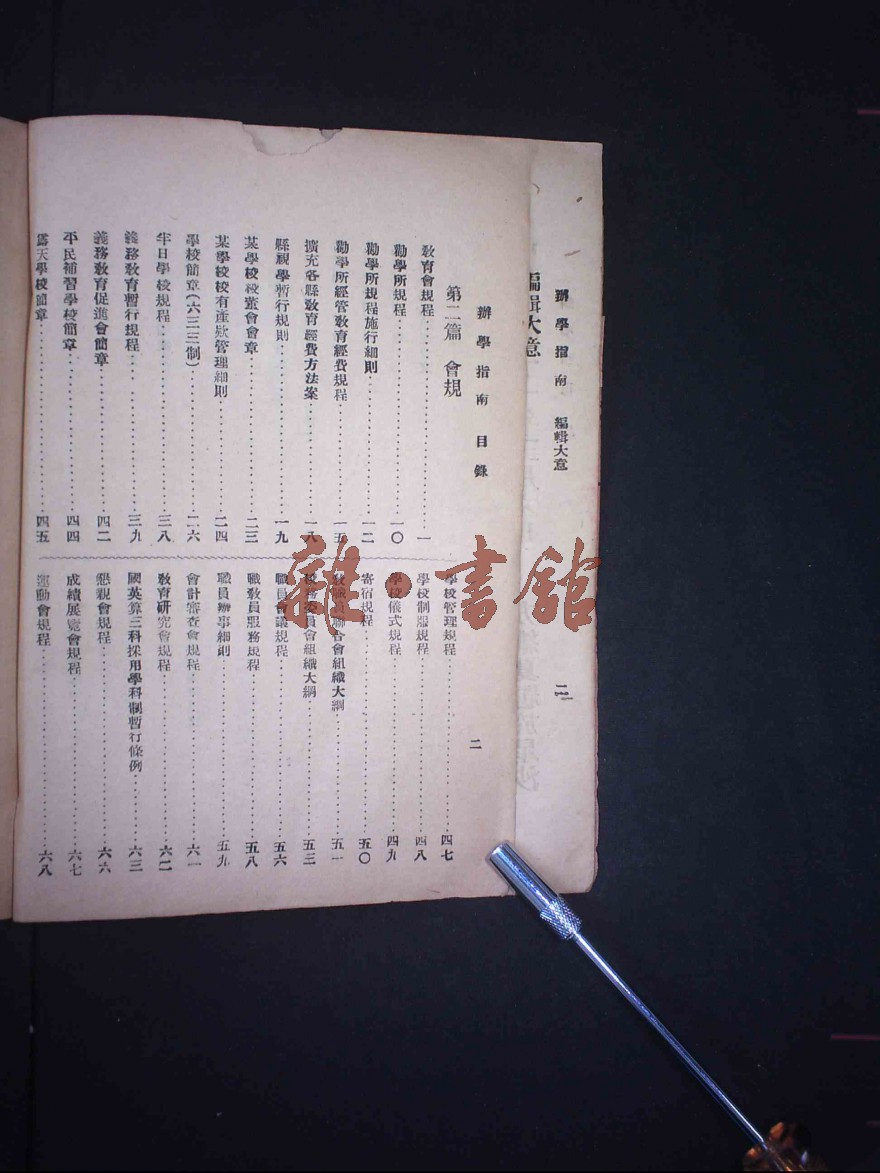 辦學指南　編輯大意
編輯大意
二
辦學指南目錄
二
第二篇　會規
敎育會規程…………一
勸學所規程…………一〇
勸學所規程施行細則…………一二
勸學所經管敎育經費規程…………一五
擴充各縣敎育經費方法案…………一八
縣視學暫行規則…………一九
某學校校董會會章…………二三
某學校校有產欵管理細則…………二四
學校簡章(六三三制)…………二六
半日學校規程…………三八
義務敎育暫行規程…………三九
義務敎育促進會簡章…………四二
平民補習學校簡章…………四四
露天學校簡章…………四五
學校管理規程…………四七
學校制服規程…………四八
學校儀式規程…………四九
寄宿規程…………五〇
敎職員聯合會組織大綱…………五一
校務委員會組織大綱…………五三
職員會議規程…………五六
職敎員服務規程…………五八
職員辦事細則…………五九
會計審查會規程…………六一
敎育研究會規程…………六二
國英算三科採用學科制暫行條例…………六三
懇親會規程…………六六
成績展覽會規程…………六七
運動會規程…………六八
雜·書館